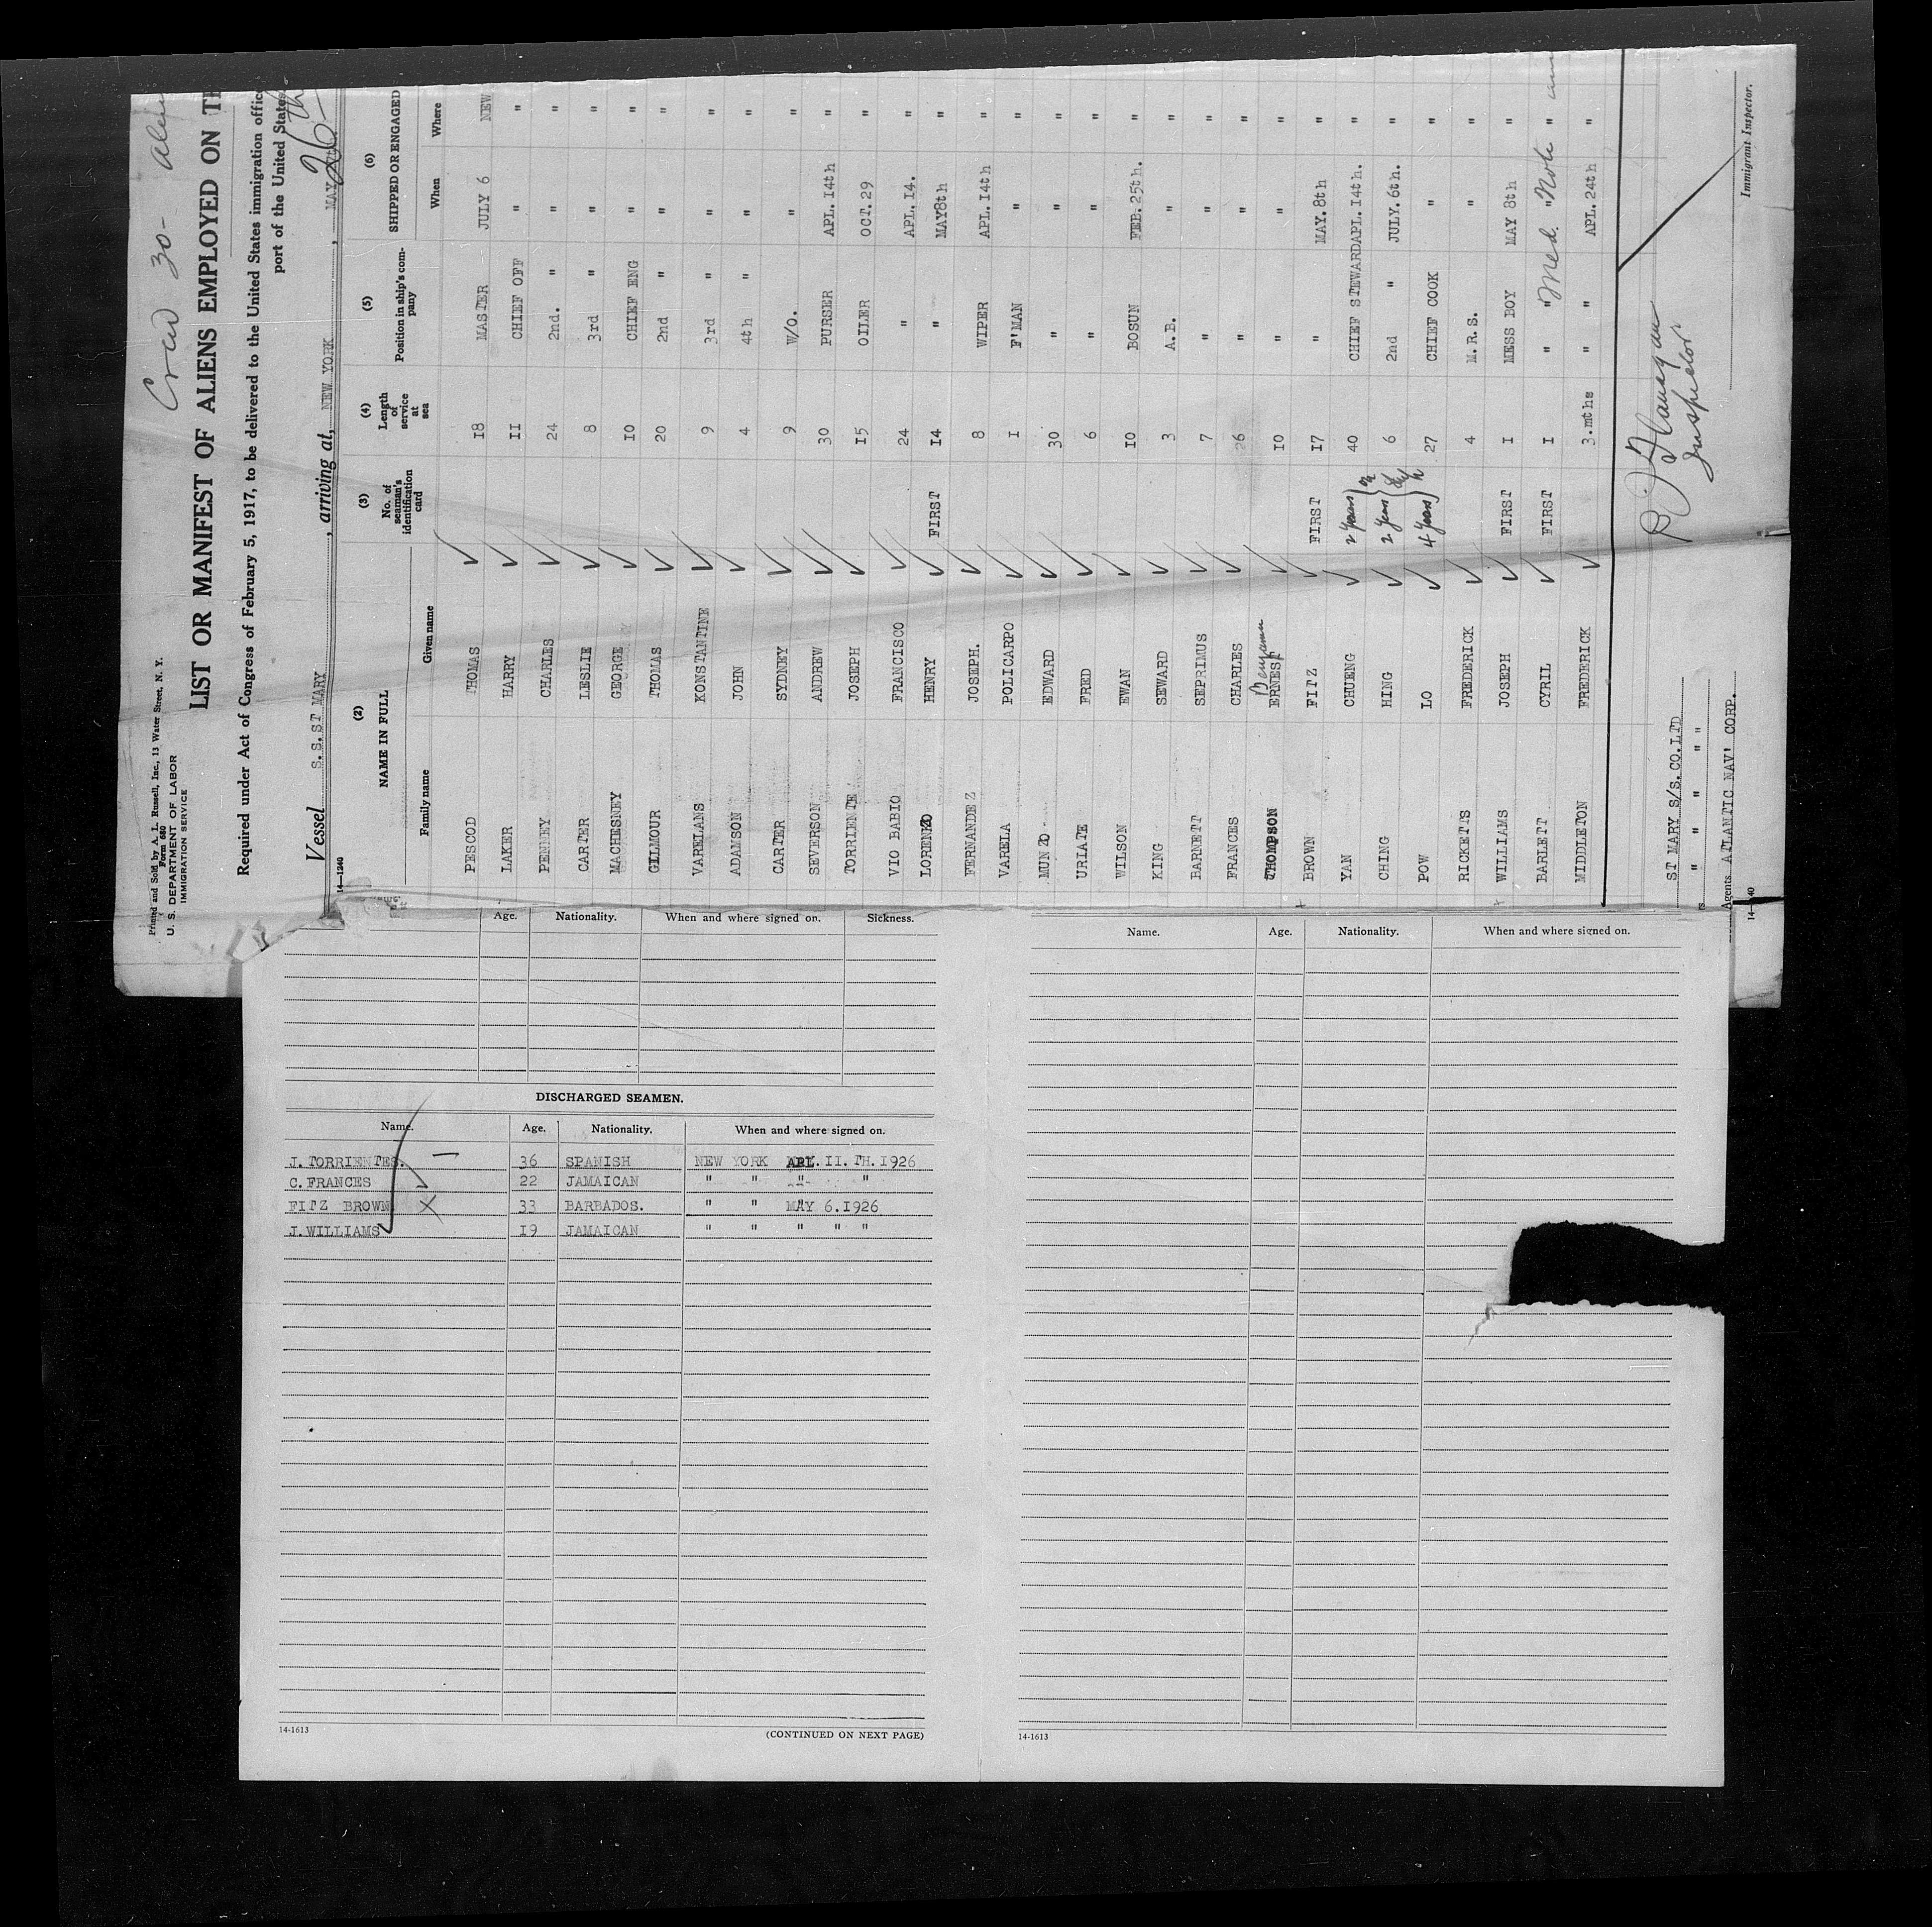 Crew 30- alien
Printed and Sold by A. L. Russell, Inc., 13 Water Street, N. Y.
Form 680
U. S. DEPARTMENT OF LABOR
IMMIGRATION SERVICE
LIST OR MANIFEST OF ALIENS EMPLOYED ON TH
Required under Act of Congress of February 5, 1917, to be delivered to the United States immigration office
port of the United States
Vessel S.S. ST MARY, arriving at, NEW YORK, MAY 26th
14—1240
(2) NAME IN FULL (3) No. of seaman's identification card (4) Length of service at sea (5) Position in ship's company (6) SHIPPED OR ENGAGED
Family name Given name When Where
PESCOD THOMAS 18 MASTER JULY 6 NEW
LAKER HARRY II CHIEF OFF " "
PENNEY CHARLES 24 2nd. " " "
CARTER LESLIE 8 3rd " " "
MACHESNEY GEORGE IO CHIEF ENG " "
GILLMOUR THOMAS 20 2nd " " "
VARELANS KONSTANTINE 9 3rd " " "
ADAMSON JOHN 4 4th " " "
CARTER SYDNEY 9 W/O. " "
SEVERSON ANDREW 30 PURSER APL. I4th "
TORRIENTE JOSEPH I5 OILER OCT. 29 "
VIO BABIO FRANCISCO 24 " APL. I4. "
LORENZO HENRY FIRST I4 " MAY8th "
FERNANDEZ JOSEPH. 8 WIPER APL. I4th "
VARELA POLICARPO I F'MAN " "
MUNZO EDWARD 30 " " "
URIATE FRED 6 " " "
WILSON EWAN IO BOSUN FEB. 25th. "
KING SEWARD 3 A.B. " "
BARNETT SEPRIMUS 7 " " "
FRANCES CHARLES 26 " " "
THOMPSON ERNEST Benjamin IO " " "
BROWN FITZ FIRST I7 " MAY. 8th "
YAN CHUENG 2 years 40 CHIEF STEWARD APL. I4th. "
CHING HING 2 years 6 2nd " JULY. 6th. "
POW LO 4 years 27 CHIEF COOK " "
RICKETTS FREDERICK 4 M.R.S. " "
WILLIAMS JOSEPH FIRST I MESS BOY MAY 8th "
BARLETT CYRIL FIRST I " " " " Med. Note
MIDDLETON FREDERICK 3.mths " " APL. 24th "
Flanagan
Inspector
ST MARY S/S. CO. LTD
" " " "
Agents. ATLANTIC NAV' CORP.
Immigrant Inspector.
14—
Age. Nationality. When and where signed on. Sickness.
DISCHARGED SEAMEN.
Name. Age. Nationality. When and where signed on.
J. TORRIENTES. 36 SPANISH NEW YORK APL. II. TH. 1926
C. FRANCES 22 JAMAICAN " " " "
FITZ BROWN X 33 BARBADOS. " " MAY 6.1926
J. WILLIAMS 19 JAMAICAN " " " " "
14-1613
(CONTINUED ON NEXT PAGE)
Name. Age. Nationality. When and where signed on.
14-1613